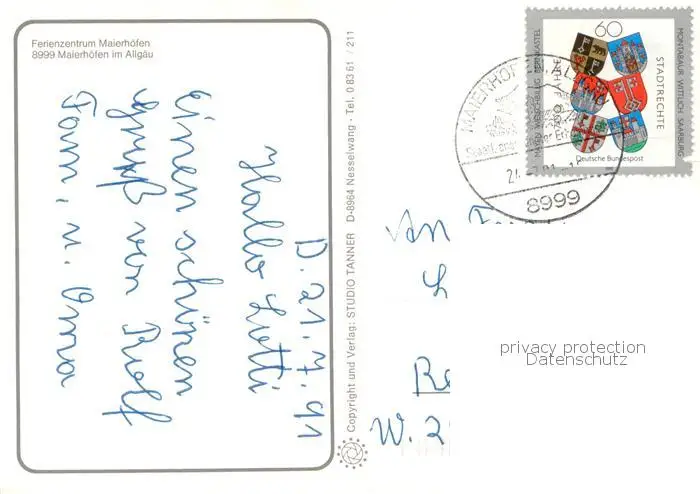 Ferienzentrum Maierhöfen
8999 Maierhöfen im Allgäu
D. 21.7.91
Hallo Lutti
einen schönen
Gruß von Rolf
Fam, u. Omva
Copyright und Verlag: STUDIO TANNER D-8964 Nesselwang · Tel. 0 83 61 / 211
60
STADTRECHTE
700 JAHRE
MAYEN WELSCHBILLIG BERNKASTEL
MONTABAUR WITTLICH SAARBURG
Deutsche Bundespost
8999
An
Re
W. 2
privacy protection
Datenschutz